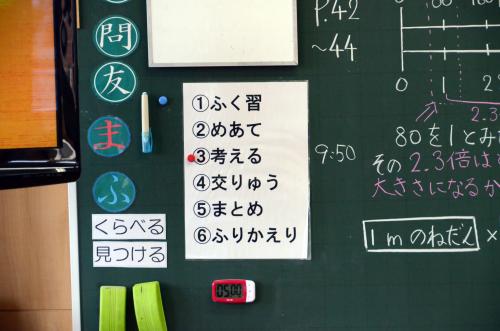 問
友
ま
ふ
くらべる
見つける
①ふく習
②めあて
③考える
④交りゅう
⑤まとめ
⑥ふりかえり
P.42
~44
9:50
0
0 1 2
2.3
80を1とみ
その2.3倍は
大きさになるか
1mのねだん×
05:00